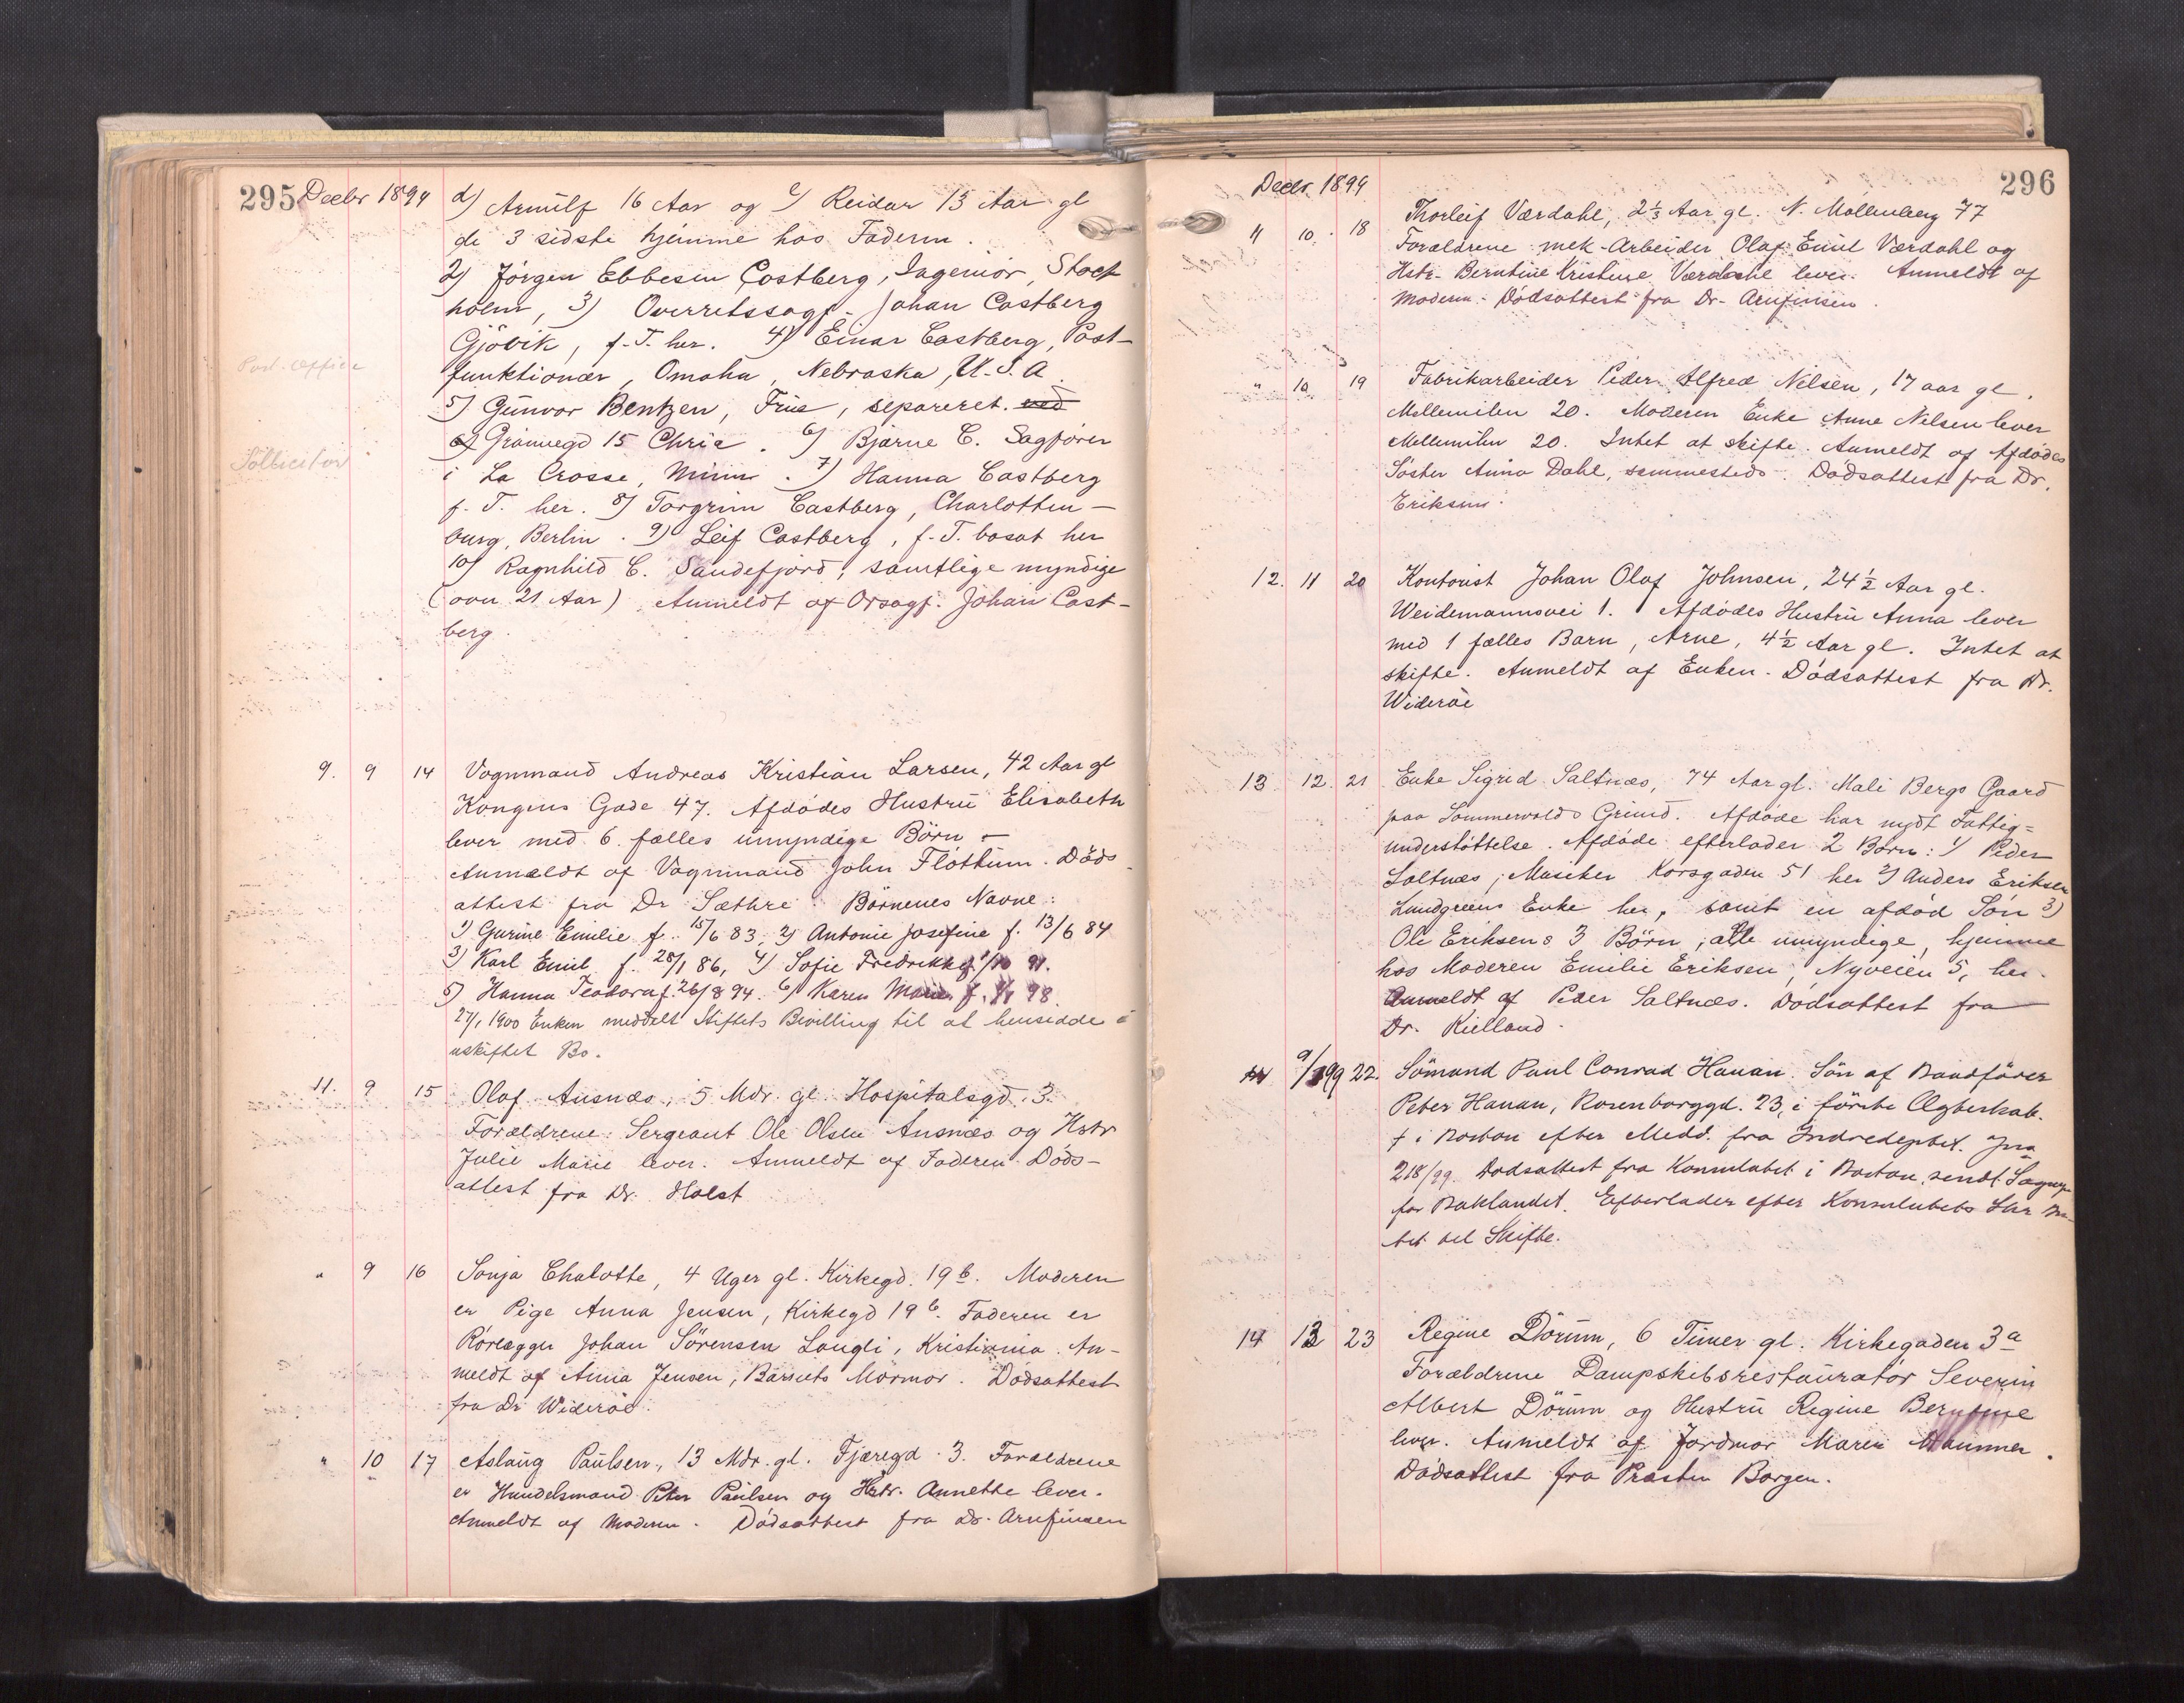 295 Decbr 1899
d) Arnulf 16 Aar og e) Reidar 13 Aar gl
de 3 sidste hjemme hos Faderen.
2) Jørgen Ebbesen Castberg, Ingeniør, Stock
holm, 3) Overretssagf. Johan Castberg
Gjøvik, f. T. her. 4) Einar Castberg, Post-
Post-office
funktionær, Omaha, Nebraska, U.S.A
5) Gunvor Bentzen, Frue, separeret. ved
Grønnegd 15 Chria. 6) Bjarne C. Sagfører
Sollicitor
i La Crosse, Minn. 7) Hanna Castberg
f. T. her. 8) Torgrim Castberg, Charlotten-
burg, Berlin. 9) Leif Castberg, f. T. bosat her
10) Ragnhild C. Sandefjord, samtlige myndige
(over 21 Aar) Anmeldt af Orsagf. Johan Cast-
berg.
9. 9 14 Vognmand Andreas Kristian Larsen, 42 Aar gl
Kongens Gade 47. Afdødes Hustru Elisabeth
lever med 6 fælles umyndige Børn -
Anmeldt af Vognmand John Fløttum. Døds-
attest fra Dr Sæthre. Børnenes Navne:
1) Gurine Emilie f. 15/6 83, 2) Antonie Josefine f. 13/6 84
3) Karl Emil f. 28/1 86, 4) Sofie Fredrikke f. 1/10 91.
5) Hanna Teodora f. 26/8 94. 6) Karen Marie f. 98.
27/1 1900 Enken meddelt Stiftets Bevilling til at hensidde i
uskiftet Bo.
11. 9 15 Olaf Ausnæs, 5 Mdr. gl. Hospitalsgd. 3.
Forældrene: Sergeant Ole Olsen Ausnæs og Hstr
Julie Marie lever. Anmeldt af Faderen. Døds-
attest fra Dr. Holst
" 9 16 Sonja Chalotte, 4 Uger gl. Kirkegd. 19 b. Moderen
er Pige Anna Jensen, Kirkegd 19 b. Faderen er
Rørlægger Johan Sørensen Langli, Kristiania. An-
meldt af Anna Jensen, Barnets Mormor. Dødsattest
fra Dr Widerøe.
" 10 17 Aslaug Paulsen, 13 Mdr. gl. Fjæregd. 3. Forældrene
er Handelsmand Peter Paulsen og Hstr. Annette lever.
Anmeldt af Moderen. Dødsattest fra Dr. Arnfinsen
Decbr. 1899 296
11 10. 18 Thorleif Værdahl, 2 1/3 Aar gl. N. Møllenberg 77
Forældrene mek-Arbeider Olaf Emil Værdahl og
Hstr. Berntine Kristine Værdahl lever. Anmeldt af
Moderen. Dødsattest fra Dr. Arnfinsen.
" 10 19 Fabrikarbeider Peder Alfred Nilsen, 17 aar gl.
Mellemilen 20. Moderen Enke Anne Nilsen lever
Mellemilen 20. Intet at skifte. Anmeldt af Afdødes
Søster Anna Dahl, sammesteds. Dødsattest fra Dr.
Eriksen.
12. 11 20 Kontorist Johan Olaf Johnsen, 24 1/2 Aar gl.
Weidemannsvei 1. Afdødes Hustru Anna lever
med 1 fælles Barn, Arne, 4 1/2 Aar gl. Intet at
skifte. Anmeldt af Enken. Dødsattest fra Dr.
Widerøe
13 12. 21 Enke Sigrid Saltnæs, 74 Aar gl. Mali Bergs Gaard
paa Sommervolds Grund. Afdøde har nydt Fattig=
understøttelse. Afdøde efterlader 2 Børn: 1) Peder
Saltnæs, Musiker Korsgaden 51 her 2) Anders Eriksen
Lundgreens Enke her, samt en afdød Søn 3)
Ole Eriksens 3 Børn, alle umyndige, hjemme
hos Moderen Emilie Eriksen, Nyveien 5, her.
Anmeldt af Peder Saltnæs. Dødsattest fra
Dr. Kielland.
22. Sømand Paul Conrad Hanan. Søn af Baadfører
Peter Hanan, Rosenborggd. 23, i første Ægteskab.
† i Boston efter Medd. fra Indredeptet. Jna
218/99. Dødsattest fra Konsulatet i Boston, sendt Sognepr
for Baklandet. Efterlader efter Konsulatets Skr In-
tet til Skifte.
14 13 23 Regine Dørum, 6 Timer gl. Kirkegaden 3 a
Forældrene Dampskibsrestauratør Severin
Albert Dørum og Hustru Regine Berntine
lever. Anmeldt af Jordmor Maren Hammer.
Dødsattest fra Præsten Borgen.